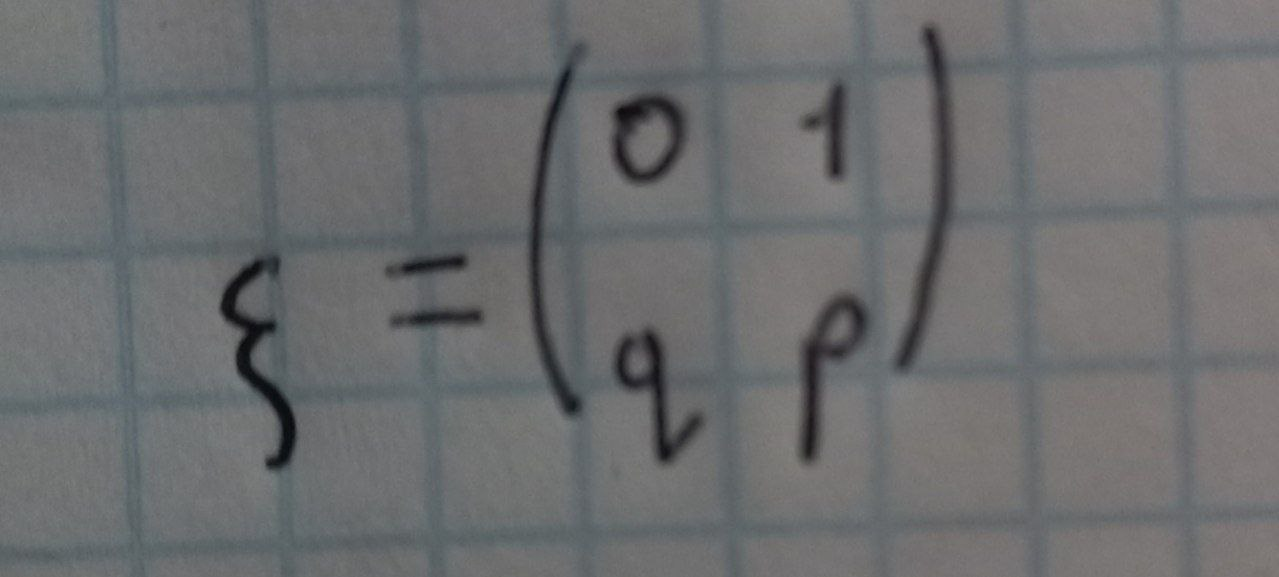 ξ = ( 0 1
q p )